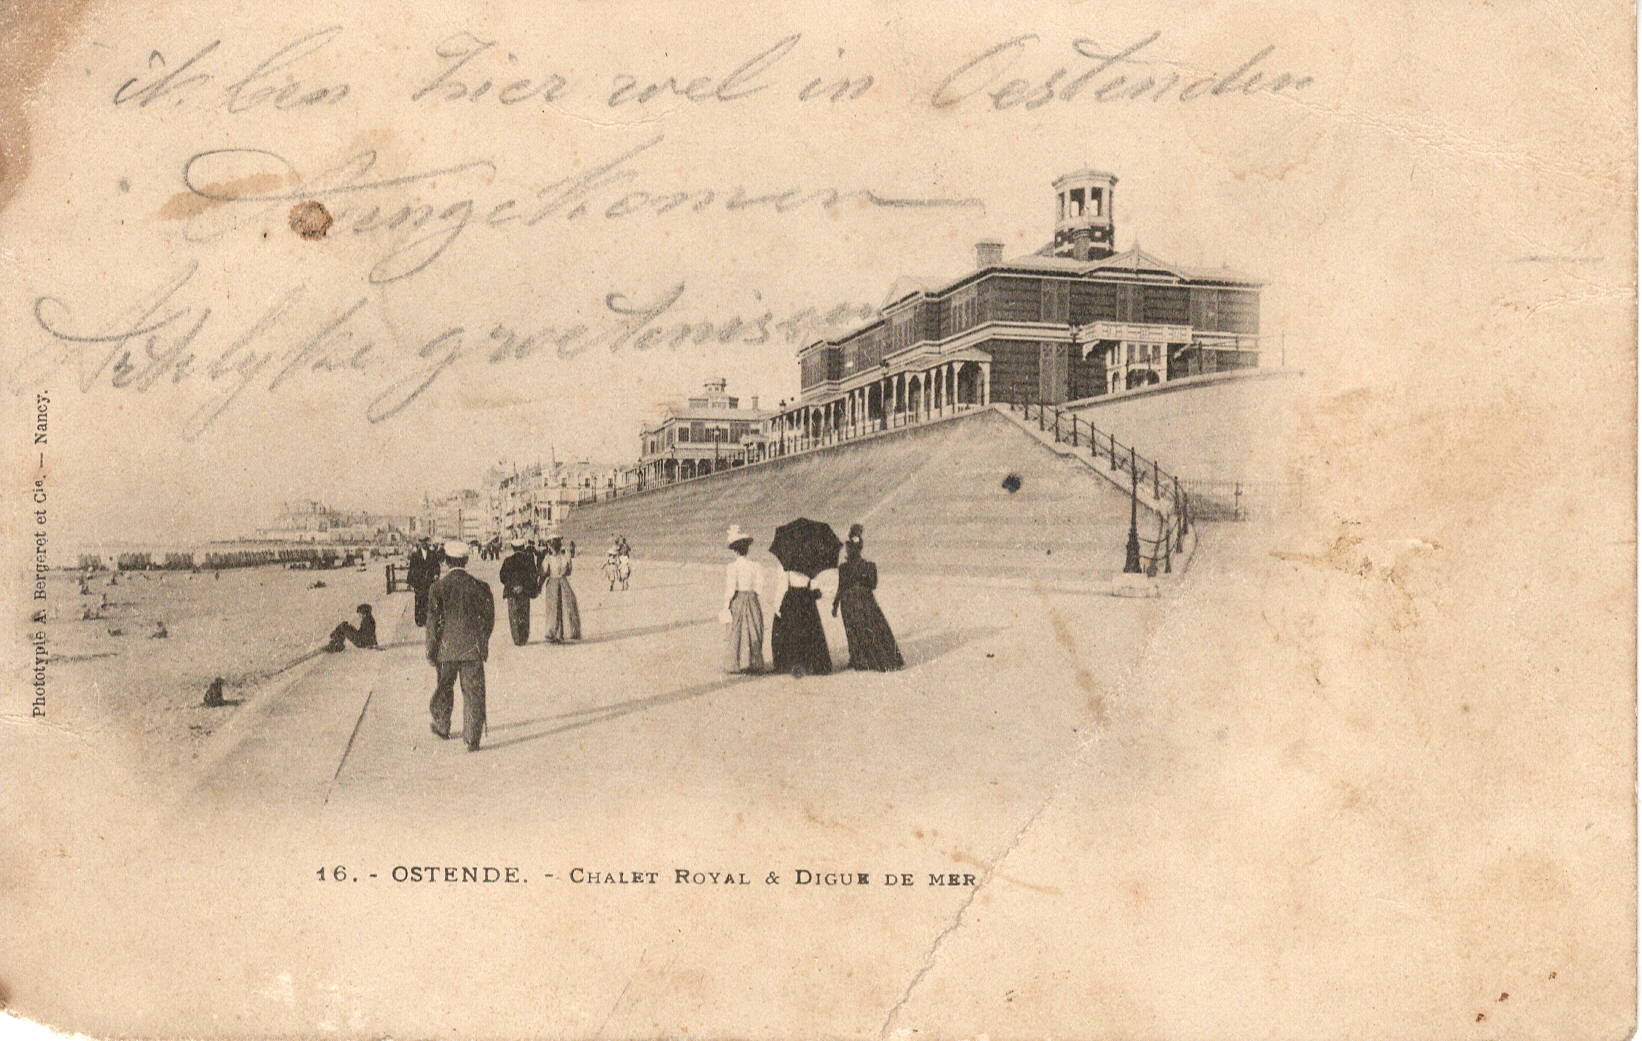 ik ben hier wel in Oestenden
Aangekomen
Hertelyke groetenissen
Phototypie A. Bergeret et Cie. — Nancy.
16. - OSTENDE. - CHALET ROYAL & DIGUE DE MER